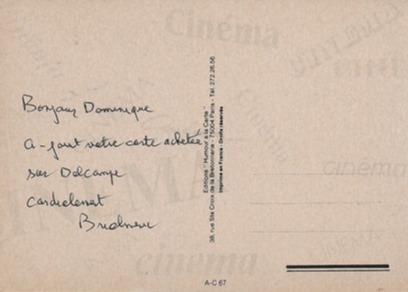 Bonjour Dominique
ci-joint votre carte achetée
sur Delcampe
Cordialement
Editions " Humour à la Carte "
38, rue Ste Croix de la Bretonnerie - 75004 Paris - Tél. 272.26.56
Imprimé en France - Droits réservés
Cinéma
CINEMA
cinéma
cinema
A-C 67